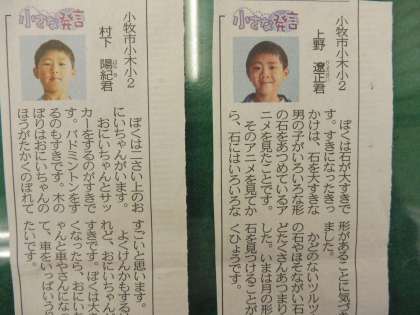 小さな発言
小牧市小木小2
上野 遼正君
ぼくは石が大すきで
す。すきになったきっ
かけは、石を大すきな
男の子がいろいろな形
の石をあつめているア
ニメを見たことです。
そのアニメを見てか
ら、石にはいろいろな
形があることに気づき
ました。
かどのないツルツル
の石やほそながい石な
どたくさんあつまりま
した。いまは月の形の
石を見つけることがも
くひょうです。
小さな発言
小牧市小木小2
村下 陽紀君
ぼくは二さい上のお
にいちゃんがいます。
おにいちゃんとサッ
カーをするのがすきで
す。バドミントンをす
るのもすきです。木の
ぼりはおにいちゃんの
ほうがたかくのぼれて
すごいと思います。
よくけんかもするけ
れど、おにいちゃんが
すきです。ぼくは大き
くなったら、おにいち
ゃんと車やさんになっ
て、車をいっぱいうり
たいです。